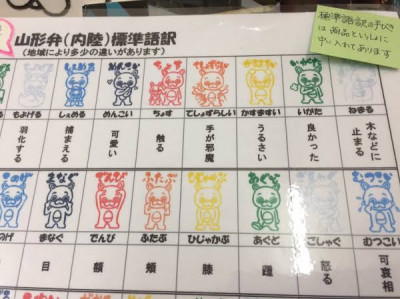 山形弁(内陸)標準語訳
(地域により多少の違いがあります)
標準語訳の手びき
は商品といっしょに
中に入れてあります
もよげる
しぇめる
めんこい
ちょす
てしょずらしい
かすますい
いがた
ねまる
羽化する
捕まえる
可愛い
触る
手が邪魔
うるさい
良かった
木などに
止まる
まなぐ
でんび
ふたぶ
ひじゃかぶ
あぐど
ごしゃぐ
むつこい
まなぐ
でんび
ふたぶ
ひじゃかぶ
あぐと
ごしゃぐ
むつこい
目
額
頬
膝
踵
怒る
可哀相